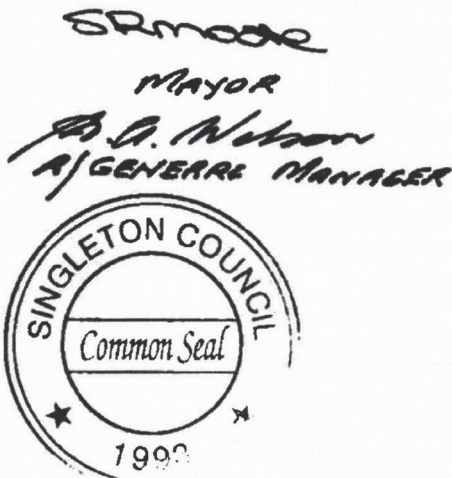 SRMoore
MAYOR
Wilson
A/GENERAL MANAGER
SINGLETON COUNCIL
Common Seal